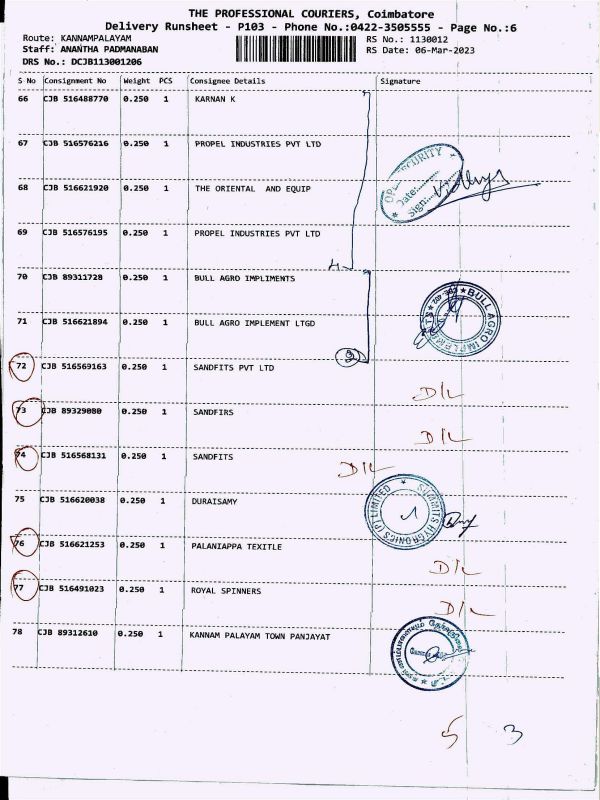 THE PROFESSIONAL COURIERS, Coimbatore
Delivery Runsheet - P103 - Phone No.:0422-3505555 - Page No.:6
Route: KANNAMPALAYAM
RS No.: 1130012
Staff: ANANTHA PADMANABAN
RS Date: 06-Mar-2023
DRS No.: DCJB113001206
S No Consignment No Weight PCS Consignee Details Signature
66 CJB 516488770 0.250 1 KARNAN K
67 CJB 516576216 0.250 1 PROPEL INDUSTRIES PVT LTD
SECURITY
Date:
Sign:
68 CJB 516621920 0.250 1 THE ORIENTAL AND EQUIP
69 CJB 516576195 0.250 1 PROPEL INDUSTRIES PVT LTD
4
70 CJB 89311728 0.250 1 BULL AGRO IMPLIMENTS
BULL AGRO IMPLEMENTS
71 CJB 516621894 0.250 1 BULL AGRO IMPLEMENT LTGD
2
72 CJB 516569163 0.250 1 SANDFITS PVT LTD
D/L
73 CJB 89329080 0.250 1 SANDFIRS
D/L
74 CJB 516568131 0.250 1 SANDFITS
D/L
75 CJB 516620038 0.250 1 DURAISAMY
SUMMITS HYGRONICS (P) LIMITED
1
76 CJB 516621253 0.250 1 PALANIAPPA TEXITLE
D/L
77 CJB 516491023 0.250 1 ROYAL SPINNERS
D/L
78 CJB 89312610 0.250 1 KANNAM PALAYAM TOWN PANJAYAT
5 3